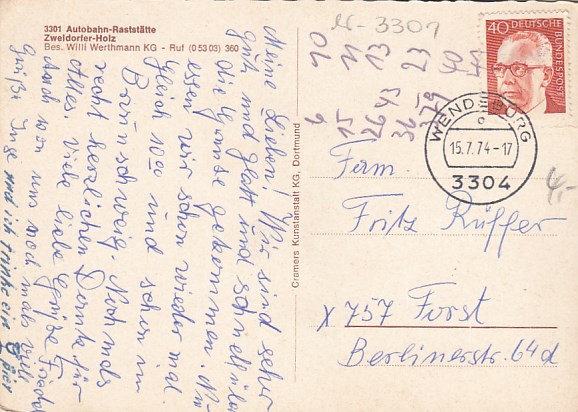 3301 Autobahn-Raststätte
Zweldorfer-Holz
Bes. Willi Werthmann KG - Ruf (0 53 03) 360
Meine Lieben! Wir sind sehr
gut und glatt und schnell über
die Grenze gekommen. Nun
essen wir schon wieder mal.
Gleich 1/2 und schon in
Braunschweig. Nochmals
recht herzlichen Dank für
Alles. Viele liebe Grüße Friedel
Auch von uns noch mals viele
Grüße Inge und ich trinke ein Bier
Cramers Kunstanstalt KG, Dortmund
3301
10 11 13 23 40
6 15 26 43 36 39
40 DEUTSCHE
BUNDESPOST
WENDEBURG
15.7.74-17
3304
4,-
Fam.
Fritz Rüffer
x 757 Forst
Berlinerstr. 64d